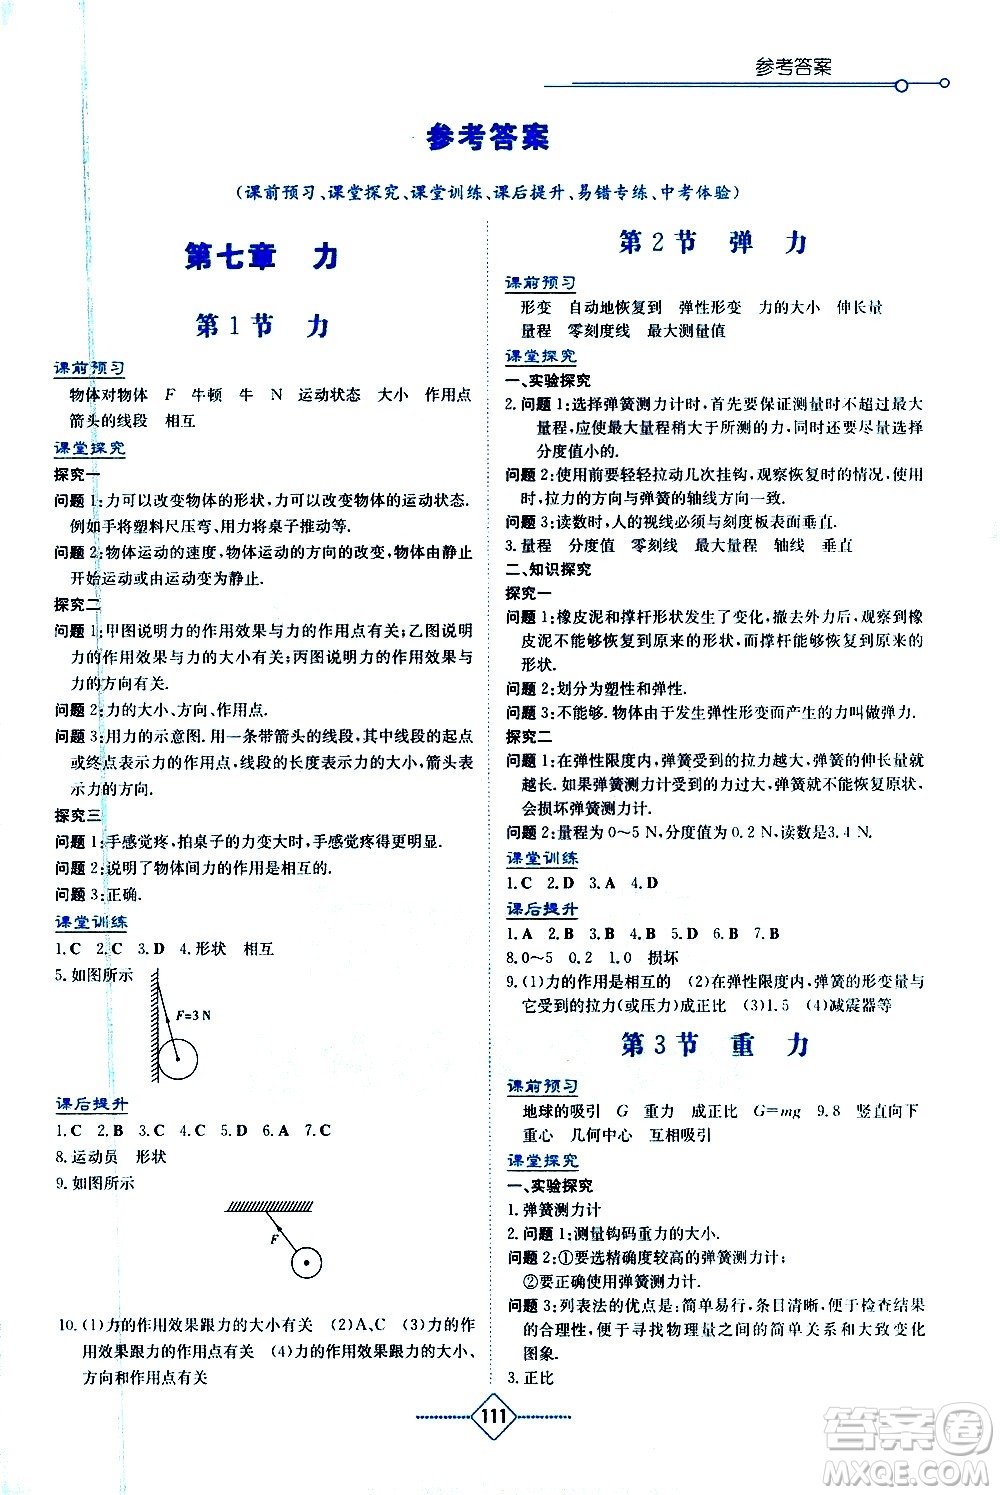 参考答案
参考答案
(课前预习、课堂探究、课堂训练、课后提升、易错专练、中考体验)
第七章 力
第1节 力
课前预习
物体对物体 F 牛顿 牛 N 运动状态 大小 作用点
箭头的线段 相互
课堂探究
探究一
问题1:力可以改变物体的形状,力可以改变物体的运动状态.
例如手将塑料尺压弯、用力将桌子推动等.
问题2:物体运动的速度,物体运动的方向的改变,由静止
开始运动或由运动变为静止.
探究二
问题1:甲图说明力的作用效果与力的作用点有关;乙图说明
力的作用效果与力的大小有关;丙图说明力的作用效果与
力的方向有关.
问题2:力的大小、方向、作用点.
问题3:用力的示意图.用一条带箭头的线段,其中线段的起点
或终点表示力的作用点,线段的长度表示力的大小,箭头表
示力的方向.
探究三
问题1:手感觉疼,拍桌子的力变大时,手感觉疼得更明显.
问题2:说明了物体间力的作用是相互的.
问题3:正确.
课堂训练
1.C 2.C 3.D 4.形状 相互
5.如图所示
F=3 N
课后提升
1.C 2.B 3.C 4.C 5.D 6.A 7.C
8.运动员 形状
9.如图所示
F
10.(1)力的作用效果跟力的大小有关 (2)A、C (3)力的作
用效果跟力的作用点有关 (4)力的作用效果跟力的大小、
方向和作用点有关
第2节 弹 力
课前预习
形变 自动地恢复到 弹性形变 力的大小 伸长量
量程 零刻度线 最大测量值
课堂探究
一、实验探究
2.问题1:选择弹簧测力计时,首先要保证测量时不超过最大
量程,应使最大量程稍大于所测的力,同时要尽量选择
分度值小的.
问题2:使用前要轻轻拉动几次挂钩,观察恢复时的情况,使用
时,拉力的方向与弹簧的轴线方向一致.
问题3:读数时,人的视线必须与刻度板表面垂直.
3.量程 分度值 零刻线 最大量程 轴线 垂直
二、知识探究
探究一
问题1:橡皮泥和撑杆形状发生了变化,撤去外力后,观察到橡
皮泥不能够恢复到原来的形状,而撑杆能够恢复到原来的
形状.
问题2:划分为塑性和弹性.
问题3:不能够.物体由于发生弹性形变而产生的力叫做弹力.
探究二
问题1:在弹性限度内,弹簧受到的拉力越大,弹簧的伸长量就
越长.如果弹簧测力计受到的拉力过大,弹簧就不能恢复原状,
会损坏弹簧测力计.
问题2:量程为0～5 N,分度值为0.2 N,读数是3.4 N.
课堂训练
1.C 2.D 3.A 4.D
课后提升
1.A 2.B 3.B 4.D 5.D 6.B 7.B
8.0～5 0.2 1.0 损坏
9.(1)力的作用是相互的 (2)在弹性限度内,弹簧的形变量与
它受到的拉力(或压力)成正比 (3)1.5 (4)减震器等
第3节 重 力
课前预习
地球的吸引 G 重力 成正比 G=mg 9.8 竖直向下
重心 几何中心 互相吸引
课堂探究
一、实验探究
1.弹簧测力计
2.问题1:测量钩码重力的大小.
问题2:①要选精确度较高的弹簧测力计;
②要正确使用弹簧测力计.
问题3:列表法的优点是:简单易行,条目清晰,便于检查结果
的合理性,便于寻找物理量之间的简单关系和大致变化
图象.
3.正比
111
答案圈
MXQE.COM